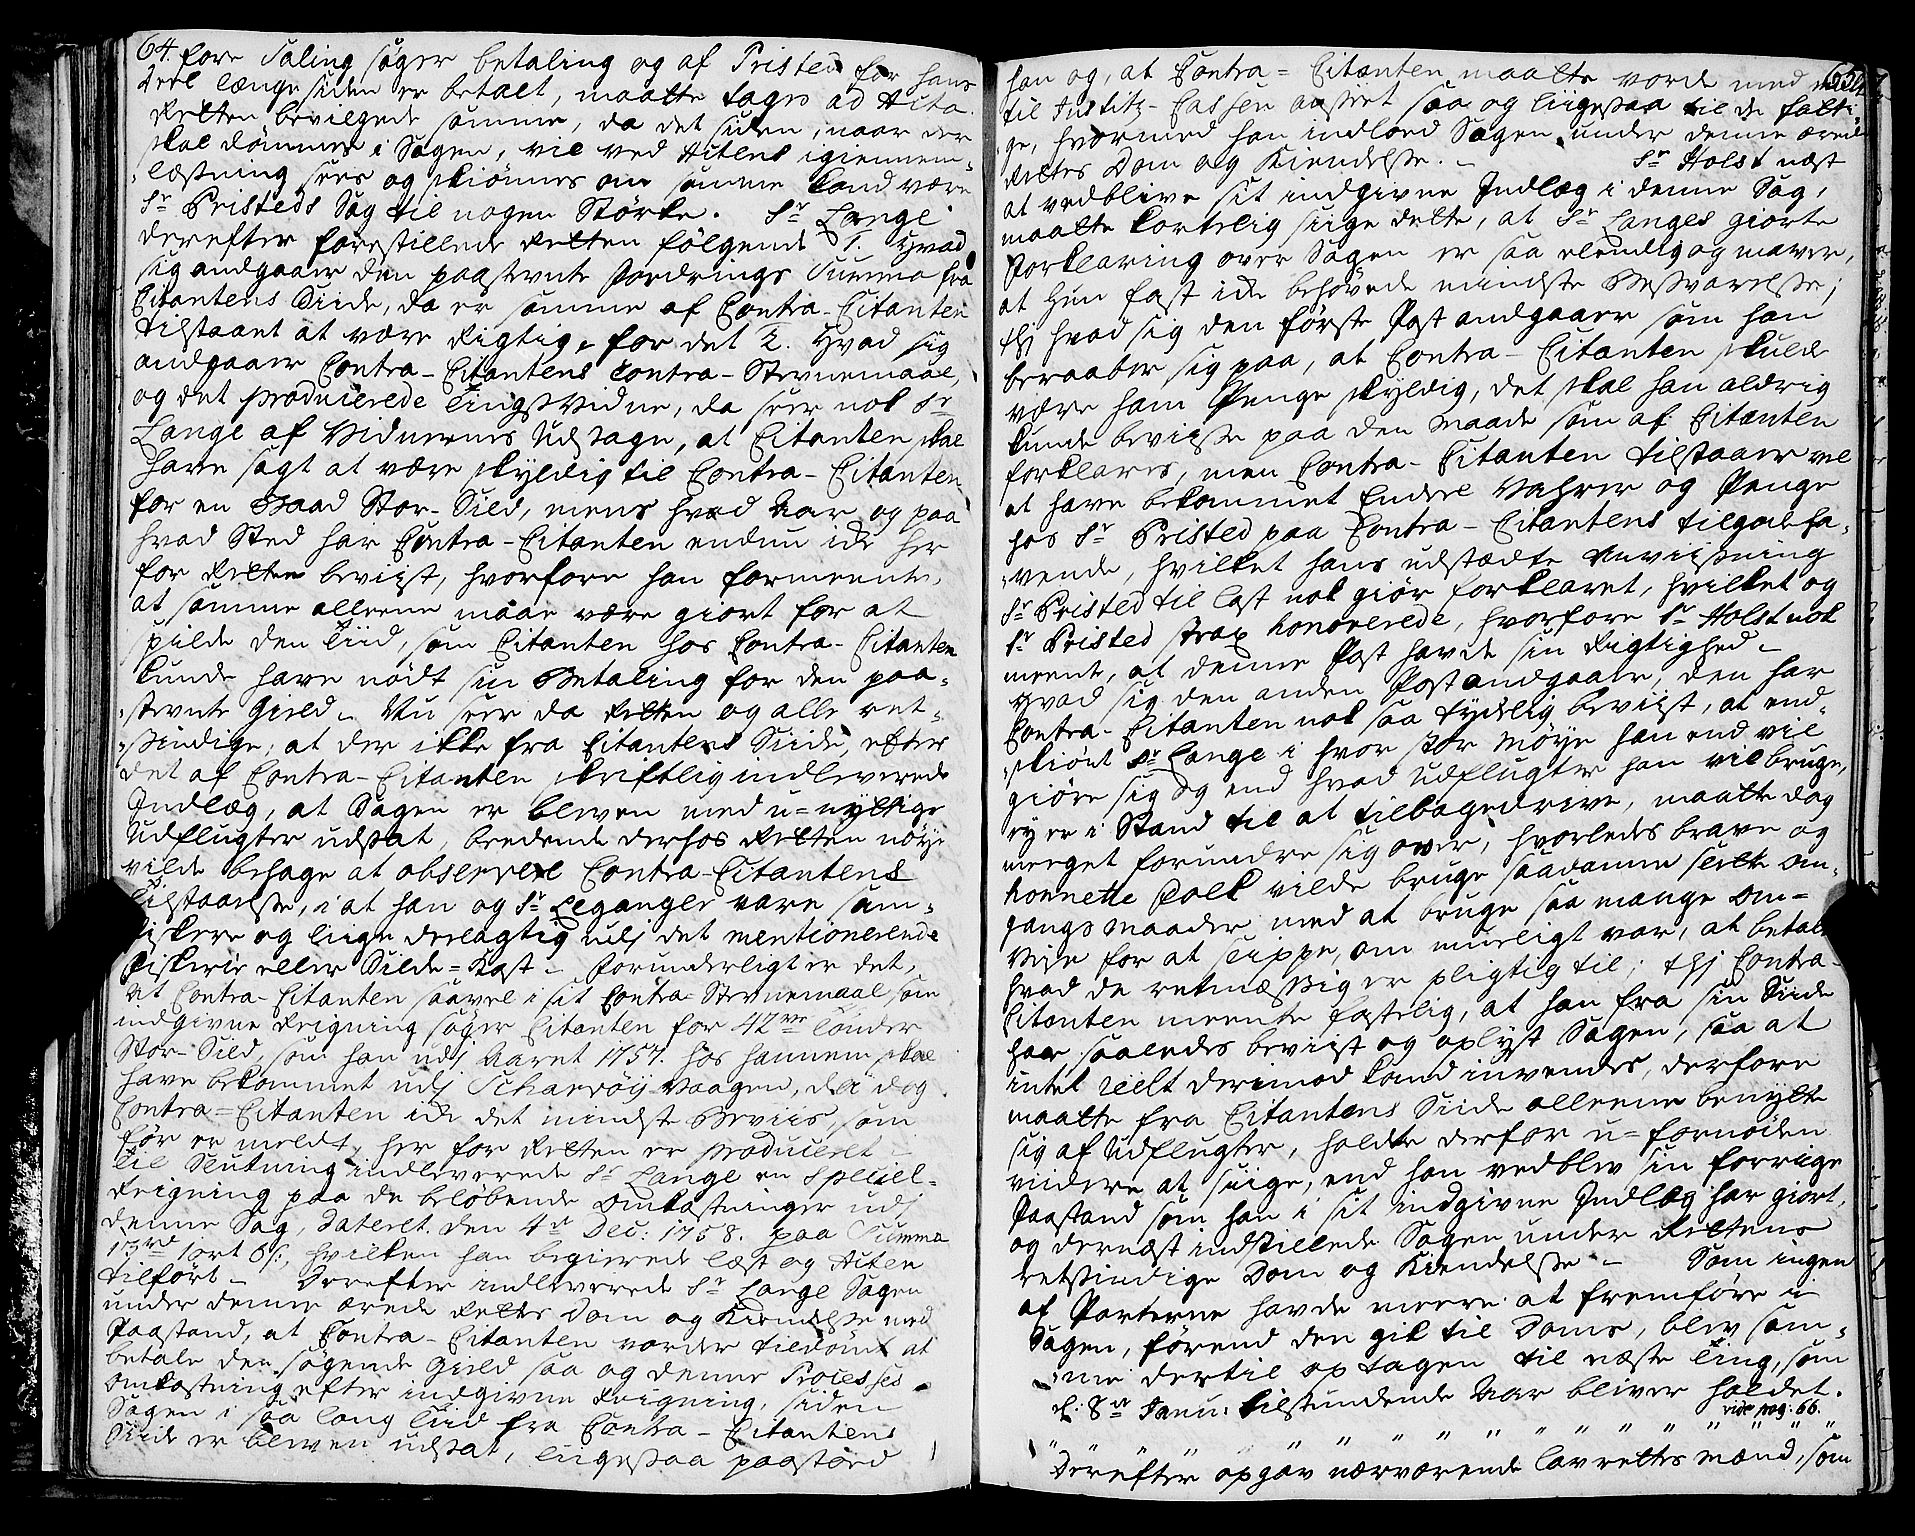 64.
fore Saling søger betaling og af Pristed for hans
Deel længe siden er betalt, maatte tages ad Acta.
Retten bevilgede samme, da det siden, naar der
skal dømmes i Sagen, vil ved Actens igiennem-
læsning sees og skiønnes om samme kand være
Sr Pristeds Sag til nogen Störke. Sr Lange
derefter forestillede Retten følgende 1. Hvad
sig andgaaer den paastevnte Fordrings Summa fra
Citantens Siide, da er samme af Contra-Citanten
tilstaaet at være Rigtig, for det 2. Hvad sig
andgaaer Contra-Citantens Contra-Stevnemaal,
og det producerede Tingsvidne, da seer nok Sr
Lange af Vidnernes Udsagn, at Citanten skal
have sagt at være skyldig til Contra-Citanten
for en Baad Stor-Sild, mens hvad Aar og paa
hvad Sted har Contra-Citanten endnu icke her
for Retten beviist, hvorfore han formeente,
at samme alleene maae være giort for at
spilde den Tiid, som Citanten hos Contra-Citanten
kunde have nødt sin Betaling for den paa-
stevnte Gield. Nu seer da Retten og alle ret-
sindige, at der ikke fra Citantens Siide, efter
det af Contra-Citanten skriftlig indleverede
Indlæg, at Sagen er bleven med u-nyttige
Udflugter udsat, bedende derhos Retten nøye
vilde behage at observere Contra-Citantens
Tilstaaelse, i at han og Sr Leganger vare sam-
fiskere og liige deelagtig udj det mentionerende
Fiskerie eller Silde-Kast. Forunderligt er det,
at Contra-Citanten saavel i sit Contra-Stevnemaal som
indgivne Reigning søger Citanten for 42ve Tønder
Stor-Sild, som han udj Aaret 1757. hos hannem skal
have bekommet udj Scharvöy-Vaagen, da dog
Contra-Citanten icke det mindste Beviis, som
før er meldt, her for Retten er produceret.
Til Slutning indleverede Sr Lange en Speciel-
Reigning paa de beløbende Omkostninger udj
denne Sag, Dateret den 4de Dec: 1758. paa Summa
1 ort 6 s:, hvilken han begierede læst og Acten
tilført. Derefter indleverede Sr Lange Sagen
under denne ærede Retts Dom og Kiendelse med
Paastand, at Contra-Citanten vorder tildømt at
betale den søgende Gield saa og denne Processes
Omkostning efter indgivne Reigning, siden
Sagen i saa lang Tiid fra Contra-Citantens
Siide er bleven udsat, liigesaa paastoed
65.
han og, at Contra-Citanten maatte vorde med
til Justitz-Cassen anseet saa og liigesaa til de fatti-
ge, hvormed han indlod Sagen under denne ærede
Rettes Dom og Kiendelse. Sr Holst næst
at vedblive sit indgivne Indlæg i denne Sag,
maatte kortelig siige dette, at Sr Langes giorte
Forklaring over Sagen er saa elendig og maver,
at Hun fast icke behøvede mindste Besvarelse;
thj hvad sig den første Post andgaaer som han
beraaber sig paa, at Contra-Citanten skulde
være ham Penge skyldig, det skal han aldrig
kunde beviise paa den Maade som af Citanten
forklares, men Contra-Citanten tilstaaer vel
at have bekommet Endeel Vahrer og Penge
hos Sr Pristed paa Contra-Citantens tilgodeha-
vende, hvilket hans udstædte Anviisning
Sr Pristed til Last nok giør forklaret, hvilket og
Sr Pristed strax honorerede, hvorfore Sr Holst nok
meent, at denne Post havde sin Rigtighed.
Hvad sig den anden Post andgaaer, den har
Contra-Citanten nok saa tydelig beviist, at end-
skiönt Sr Lange i hvor stor Møye han end vil
giøre sig og end hvad Udflugter han vil bruge,
ey er i Stand til at tilbagedrive, maatte dog
meeget forundre sig over, hvorledes brave og
honnette Folk vilde bruge saadanne slette om-
gangs Maader med at bruge saa mange Om-
Veye for at slippe, om mueligt var, at betale
hvad de retmæssig er pligtig til; thj Contra-
Citanten meente fastelig, at han fra sin Siide
har saaledes beviist og oplyst Sagen, saa at
intet reelt derimod kand invendes, derfore
maatte fra Citantens Siide alleene benytte
sig af Udflugter, holdte derfor u-fornøden
viidere at siige, end han vedblev sin forrige
Paastand som han i sit indgivne Indlæg har giort,
og dernæst indstillede Sagen under Rettens
retsindige Dom og Kiendelse. Som ingen
af Parterne havde meere at fremføre i
Sagen, førend den gik til Doms, blev sam-
me dertil optagen til næste Ting, som
d: 8de Janu: tilstundende Aar bliver holdet.
vide pag: 66.
" " " " " " " " " " " " " " " " "
Derefter opgav nærværende Lavrettes Mænd, som